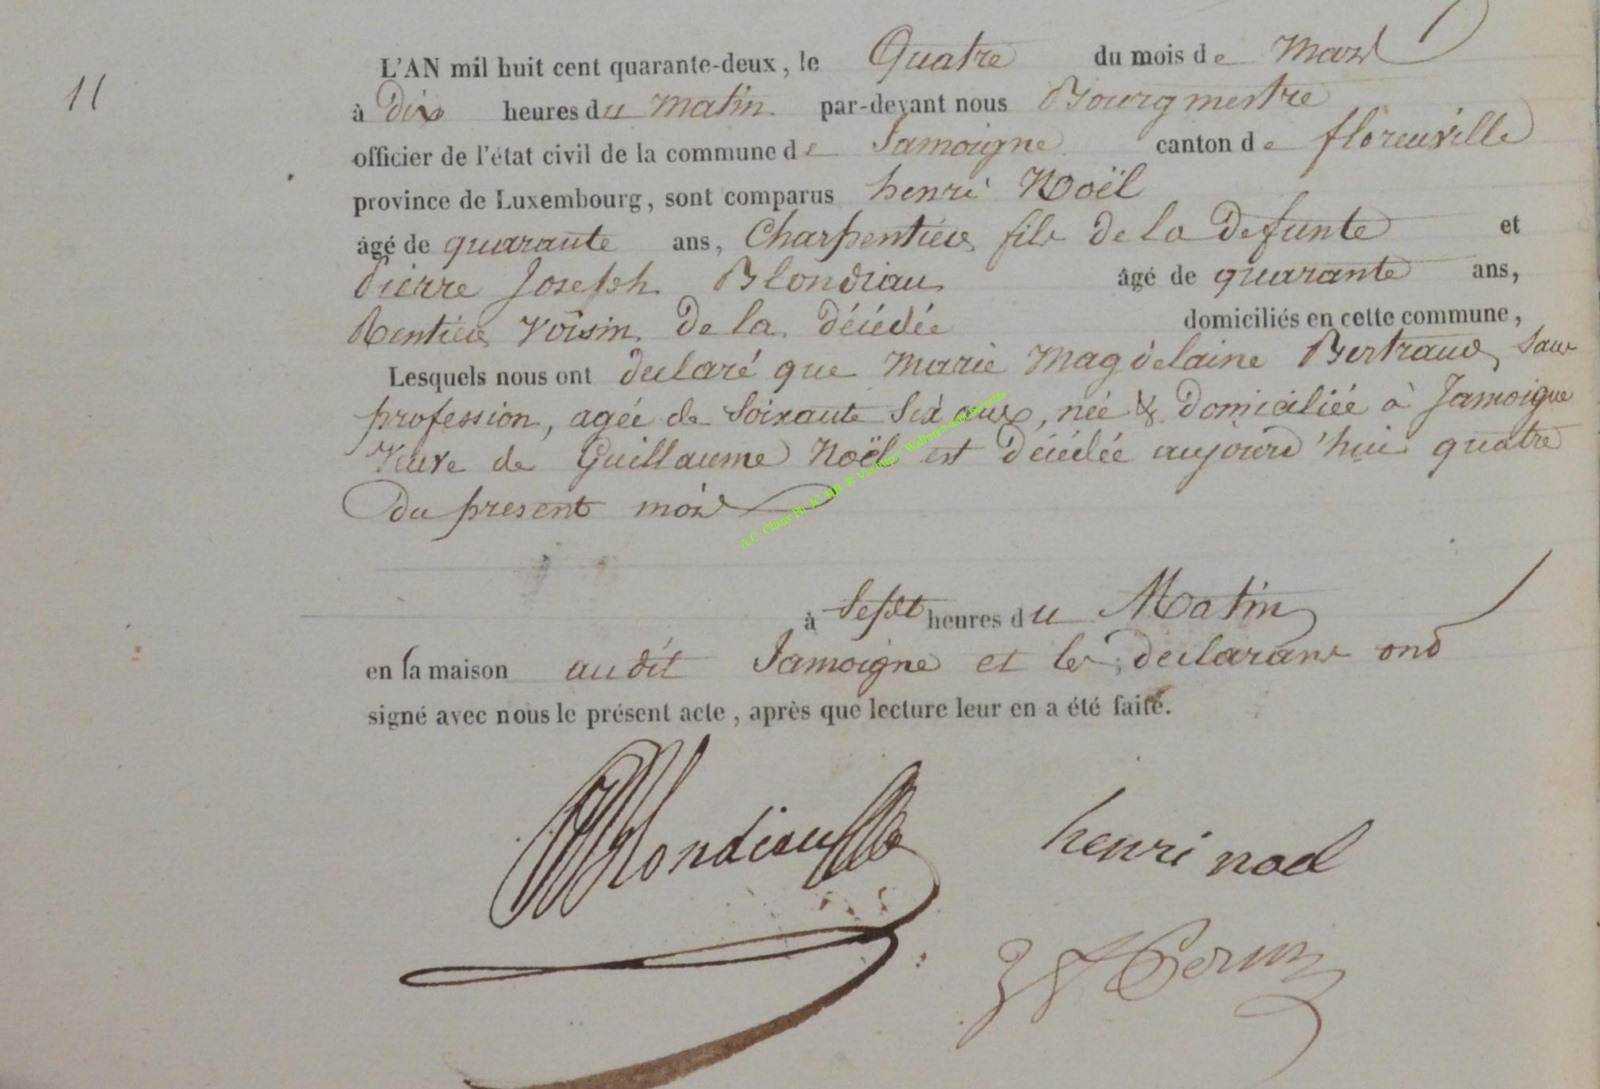 11
L'AN mil huit cent quarante-deux, le Quatre du mois de Mars
à dix heures du matin par-devant nous Bourgmestre
officier de l'état civil de la commune de Jamoigne canton de florenville
province de Luxembourg, sont comparus henri Noël
âgé de quarante ans, Charpentier, fils de la defunte et
Pierre Joseph Blondiau âgé de quarante ans,
Rentier, voisin de la décédée domiciliés en cette commune,
Lesquels nous ont declaré que Marie Magdelaine Bertrand, sans
profession, agée de soixante six ans, née & domiciliée à Jamoigne
Veuve de Guillaume Noël est décédée aujourd'hui quatre
du present mois
à Sept heures du Matin
en sa maison audit Jamoigne et les declarans ont
signé avec nous le présent acte, après que lecture leur en a été faite.
Blondiau henri noel